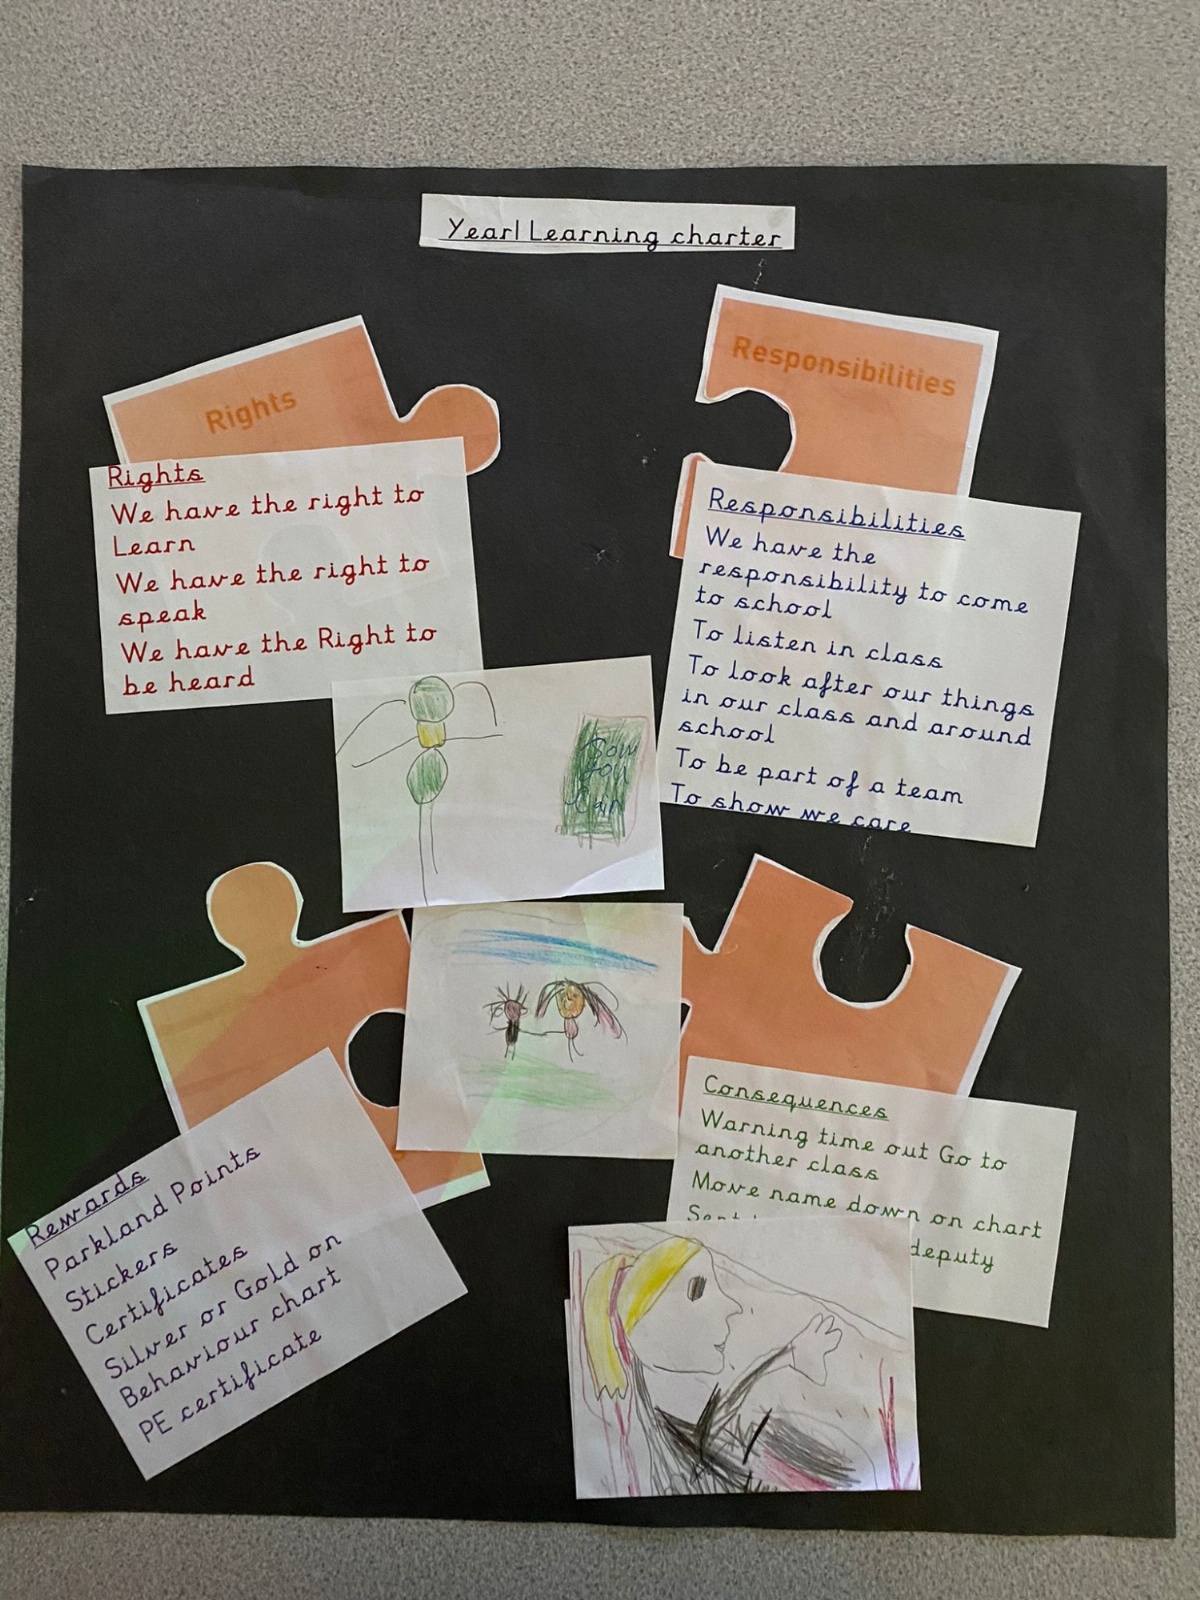 Year1 Learning charter
Rights
Responsibilities
Rights
We have the right to
Learn
We have the right to
speak
We have the Right to
be heard
Responsibilities
We have the
responsibility to come
to school
To listen in class
To look after our things
in our class and around
school
To be part of a team
To show we care
You
Can
Rewards
Parkland Points
Stickers
Certificates
Silver or Gold on
Behaviour chart
PE certificate
Consequences
Warning time out Go to
another class
Move name down on chart
Sent
deputy